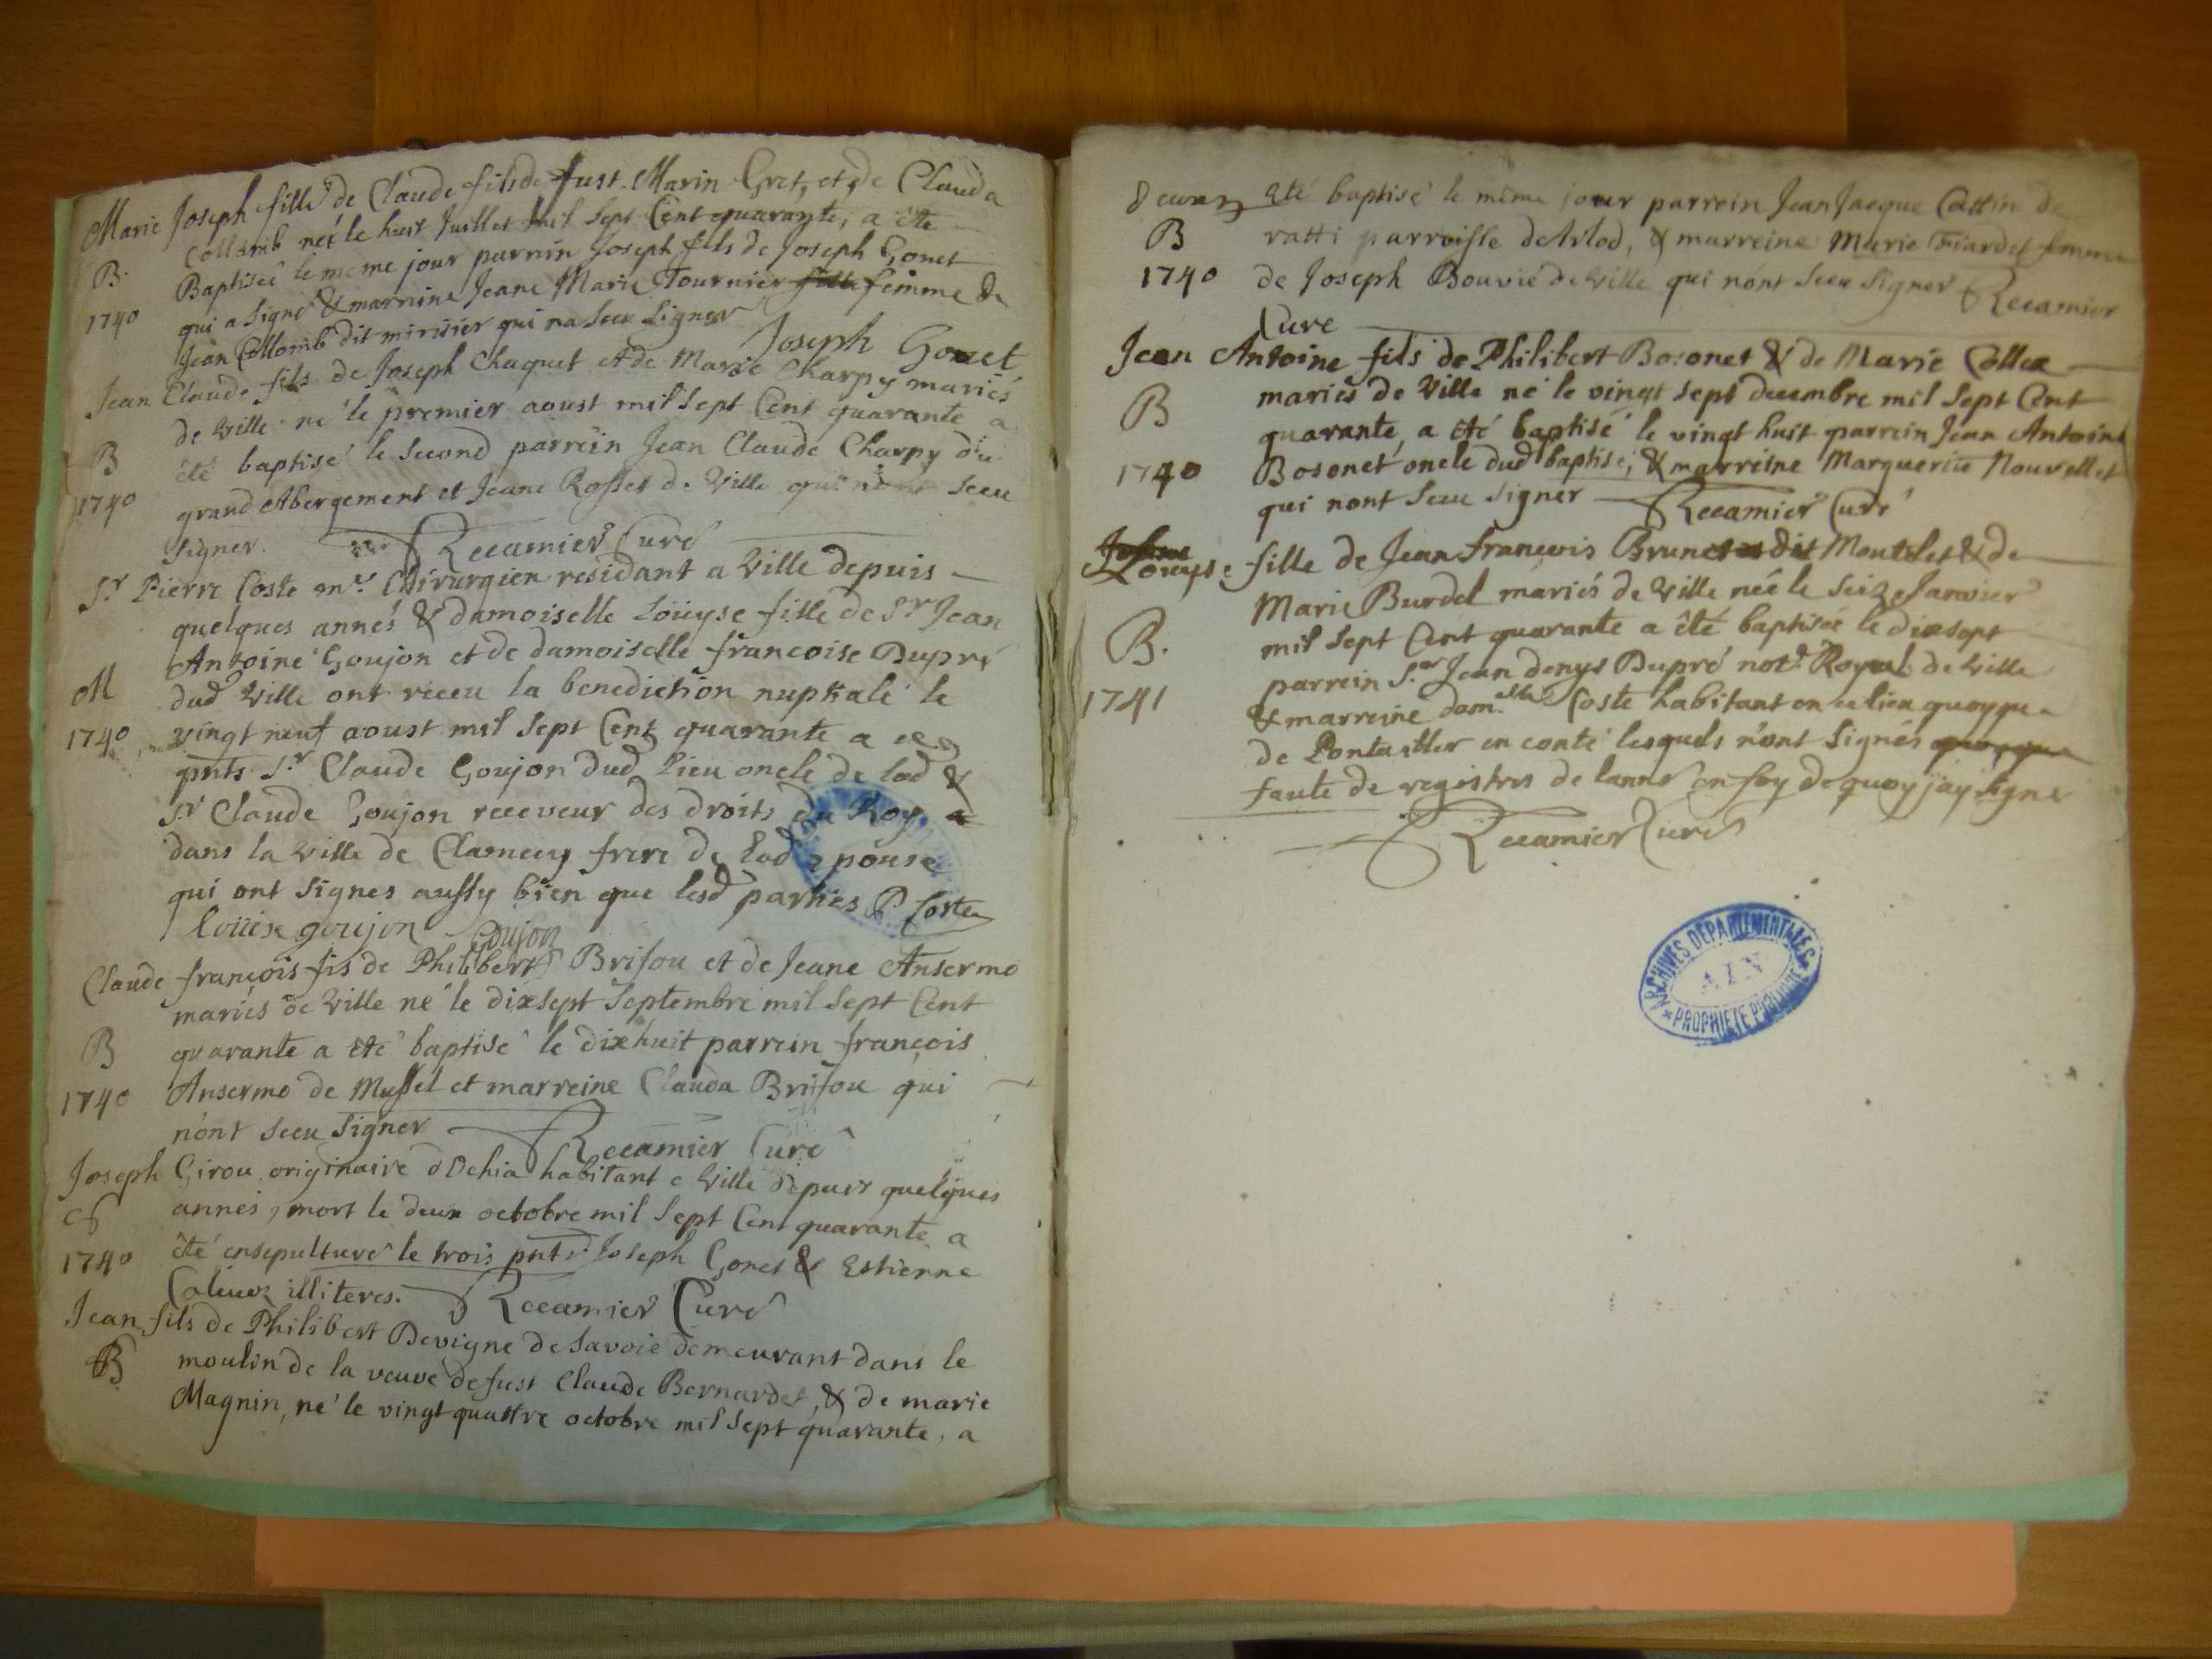 Marie Joseph fille de Claude fils de fust Marin Gret, et de Clauda
Collomb neé le huit Juillet mil sept Cent quarante, a été
B. Baptiseé le meme jour parrein Joseph fils de Joseph Gonet
1740 qui a signé & marreine Jeane Marie Tournier fille femme de
Jean Collomb dit mirisier qui na sceu signer
Joseph Gonet
Jean Claude fils de Joseph Chaquet et de Marie Charpy mariés
de Ville né le premier aoust mil sept Cent quarante a
B été baptisé le second parrein Jean Claude Charpy du
1740 grand Abergement et Jeane Rosset de Ville qui n'ont sceu
signer. Recamier Curé
Sr Pierre Coste me Chirurgien residant a Ville depuis
quelques annés & damoiselle Loüyse fille de Sr Jean
Antoine Goujon et de damoiselle francoise Dupré
M dud Ville ont receu la benediction nuptiale le
1740 vingt neuf aoust mil sept Cent quarante a ce
pnts Sr Claude Goujon dud lieu oncle de lad &
Sr Claude Goujon receveur des droits du Roy
dans la ville de Clamecy frere de lad epouse
qui ont signes aussy bien que lesd parties P Coste
loüise goujon Goujon
Claude françois fis de Philibert Brifou et de Jeane Ansermo
mariés de Ville né le dixsept Septembre mil sept Cent
B quarante a été baptisé le dixhuit parrein françois
1740 Ansermo de Mussel et marreine Clauda Brifou qui
n'ont sceu signer Recamier Curé
Joseph Girou originaire d'Ochia habitant a Ville depuis quelques
annés, mort le deux octobre mil sept Cent quarante a
1740 été ensepulturé le trois pnts Joseph Gonet & Estienne
illiteres. Recamier Curé
Jean fils de Philibert Devigne de Savoie demeurant dans le
B moulin de la veuve de fust Claude Bernardet, & de marie
Magnin, né le vingt quattre octobre mil sept quarante, a
été baptisé le même jour parrein Jean Jacque Cottin de
B ratti parroisse de Arlod, & marreine Marie Fiardet femme
1740 de Joseph Bouvié de Ville qui n'ont sceu signer Recamier
Cure
Jean Antoine fils de Philibert Bosonet & de Marie Collex
mariés de Ville né le vingt sept decembre mil sept Cent
B quarante, a été baptisé le vingt huit parrein Jean Antoine
1740 Bosonet oncle dud baptisé, & marreine Marguerite Nouvellet
qui nont sceu signer Recamier Curé
Loüyse fille de Jean françois Brunet dit Moutelet & de
Marie Burdel mariés de Ville neé le Seize Janvier
B. mil sept Cent quarante a été baptiseé le dixsept
parrein Sr Jean denys Dupré notre Royal de Ville
1741 & marreine damlle Coste habitant en ce lieu quoyque
de Pontailler en conté lesquels n'ont signés quoyque
faute de registres de lanné en foy de quoy jay signé
Recamier Curé
ARCHIVES DEPARTEMENTALES
AIN
PROPRIETE PUBLIQUE